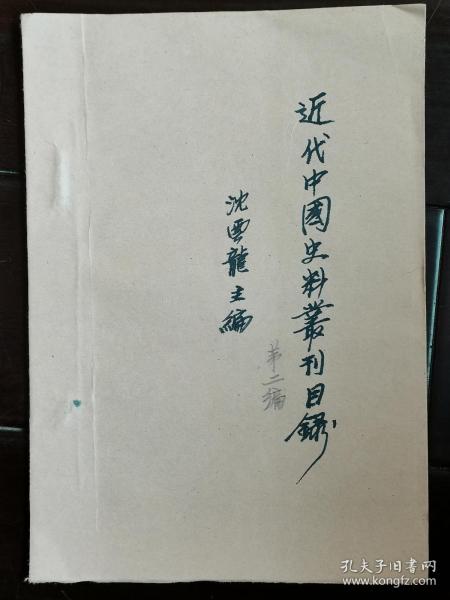 近代中國史料叢刊目錄
第二编
沈雲龍主編
孔夫子旧书网
www.kongfz.com